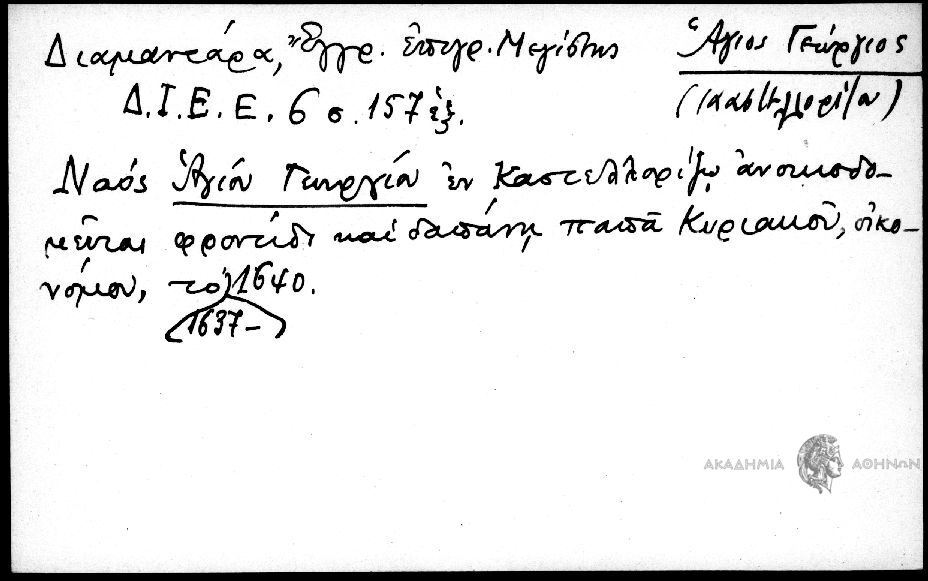 Διαμαντάρα, Ἔγγρ. ἐπιγρ. Μεγίστης
Ἅγιος Γεώργιος
Δ.Ι.Ε.Ε. 6 σ. 157 ἑξ.
(Καστελλορίζου)
Ναός Ἁγίου Γεωργίου ἐν Καστελλορίζῳ ἀνοικοδο-
μεῖται φροντίδι καί δαπάνῃ παπᾶ Κυριακοῦ, οἰκο-
νόμου, τό 1640.
(1637-)
ΑΚΑΔΗΜΙΑ ΑΘΗΝΩΝ